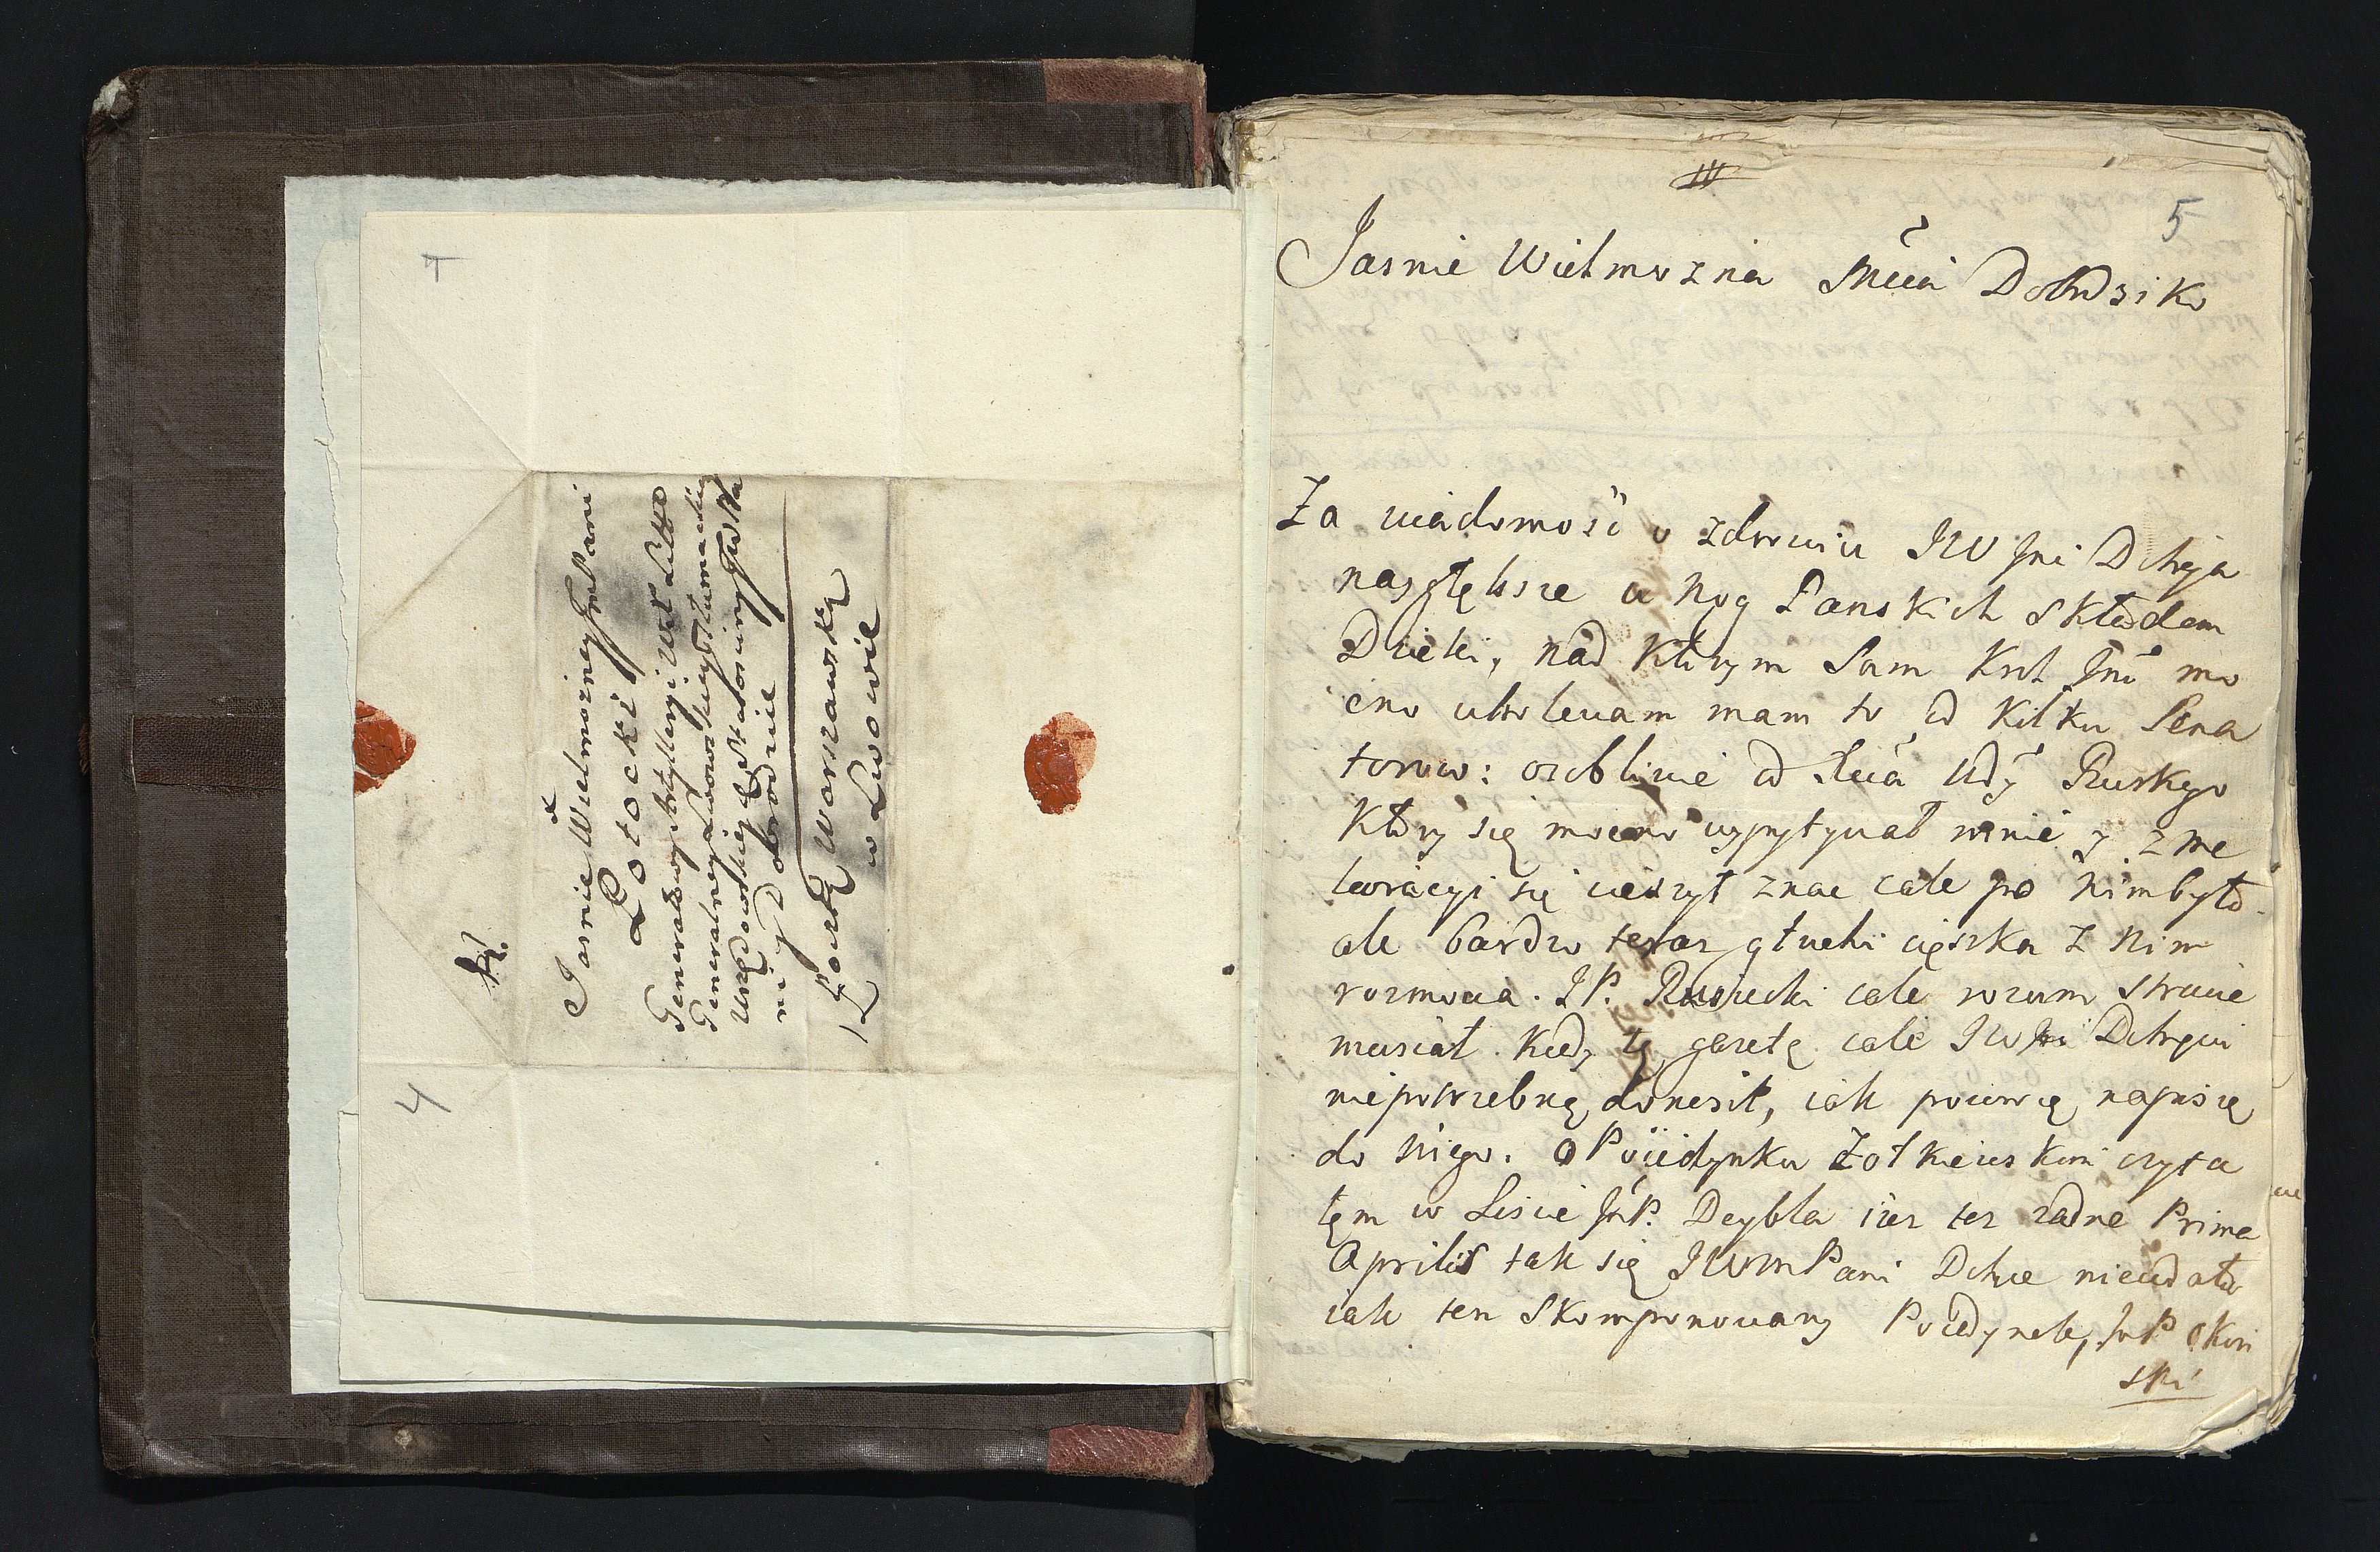 4
K.
Jasnie Wielmozney JmPani
Potocki
Generałowy Artyleryi WXLitto
Generalney Lwowskiey Tłumackiey
Urzędowskiey &c Starosciny JWPa
ni y Dobrodzice
Pocztą Warszawską
w Lwowie
4
IV
5
Jasnie Wielmozna Mcia Dobdziko
Za wiadomość o zdrowiu JW Jmi Dchęja
nayłębsze u Nog Panskich składam
Dzięki, nad ktorym Sam Krol Jmć mo
cno ubolewam mam to od kilku Sena
torow: osobliwie od Xcia Wdy Ruskgo
Ktory się mocno wypytywał mnie y z me
lioracyi się cieszył znac cale po Nim było
ale bardzo teraz głuchi cięszka z Nim
rozmowa. JP. Rusiecki cale rozum stracic
musiał kiedy tę gazetę cale JWPni Dchęwi
niepotrzebną doniosł, iak powrocę napiszę
do Niego. O Poiedynku Zołkiewskim czyta
łem w Liscie JmP. Deybla iusz tes zadne Prima
Aprilis tak się JWMPani Dchce nieudało
iak ten skomponowany Poiedynek, JmP Okon
ski